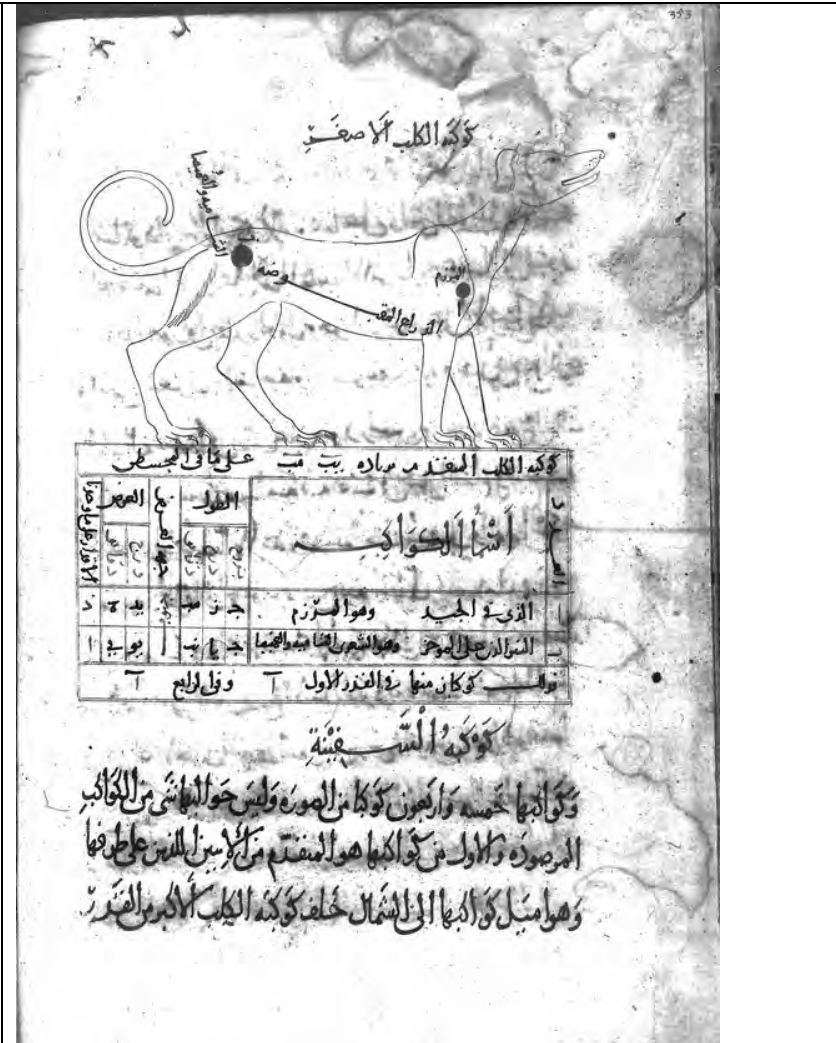 353
كوكبه الكلب الاصغر
الشاميه والغميصا
المرزم
الذراع المقبوضة
كوكبه الكلب المتقدم بزياده يب مب على ما فى المجسطى
العدد
اسما الكواكب
الطول
جهة العرض
العرض
بروج درج دقايق
درج دقايق
ا الذى فى الجيد وهو المرزم ج
ب النير الذى على الموخر وهو الشعرى الشاميه والغميصا ج
فذلك كوكبان منها فى القدر الاول آ وفى الرابع آ
كوكبه السفينة
وكواكبها خمسه واربعون كوكبا من الصوره وليس حواليها شى من الكواكب
المرصوده والاول من كواكبها هو المتقدم من الاثنين اللذين على طرفها
وهو اميل كواكبها الى الشمال خلف كوكبه الكلب الاكبر من القدر